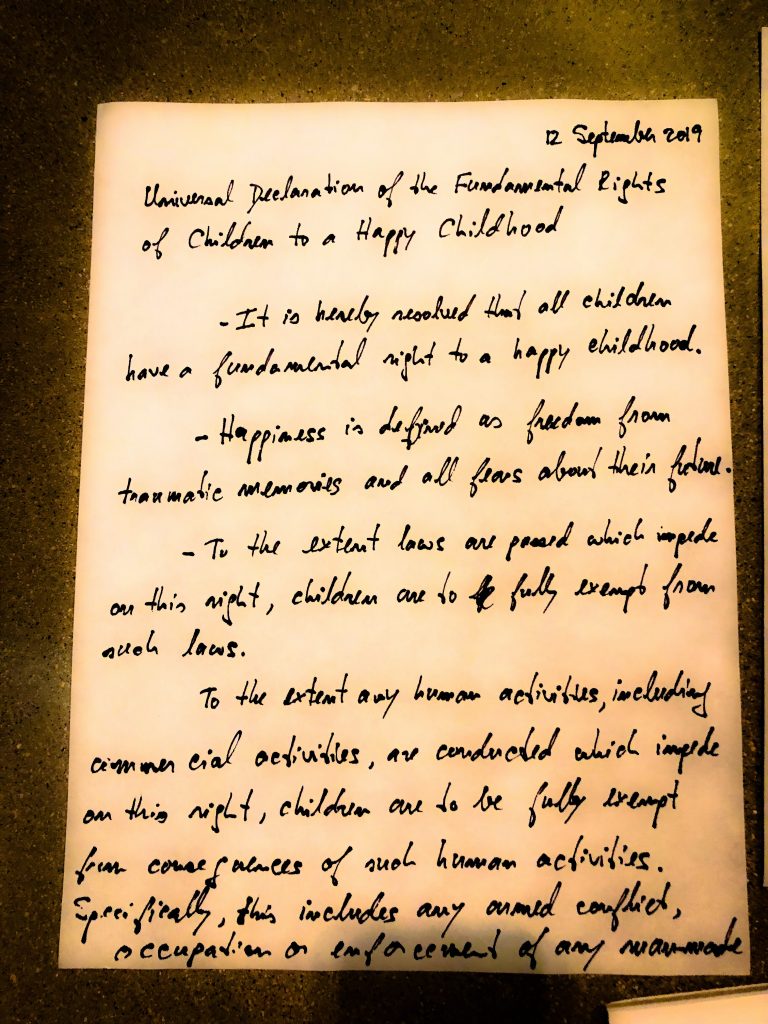 12 September 2019
Universal Declaration of the Fundamental Rights
of Children to a Happy Childhood
- It is hereby resolved that all children
have a fundamental right to a happy childhood.
- Happiness is defined as freedom from
traumatic memories and all fears about their future.
- To the extent laws are passed which impede
on this right, children are to be fully exempt from
such laws.
To the extent any human activities, including
commercial activities, are conducted which impede
on this right, children are to be fully exempt
from consequences of such human activities.
Specifically, this includes any armed conflict,
occupation or enforcement of any manmade